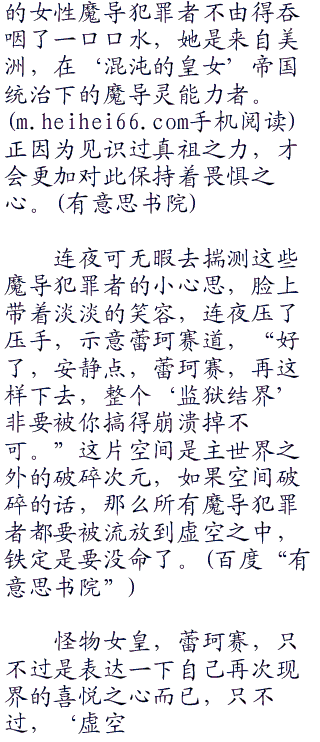 的女性魔导犯罪者不由得吞
咽了一口口水，她是来自美
洲，在‘混沌的皇女’帝国
统治下的魔导灵能力者。
(m.heihei66.com手机阅读)
正因为见识过真祖之力，才
会更加对此保持着畏惧之
心。(有意思书院)
连夜可无暇去揣测这些
魔导犯罪者的小心思，脸上
带着淡淡的笑容，连夜压了
压手，示意蕾珂赛道，“好
了，安静点，蕾珂赛，再这
样下去，整个‘监狱结界’
非要被你搞得崩溃掉不
可。”这片空间是主世界之
外的破碎次元，如果空间破
碎的话，那么所有魔导犯罪
者都要被流放到虚空之中，
铁定是要没命了。(百度“有
意思书院”)
怪物女皇，蕾珂赛，只
不过是表达一下自己再次现
界的喜悦之心而已，只不
过，‘虚空